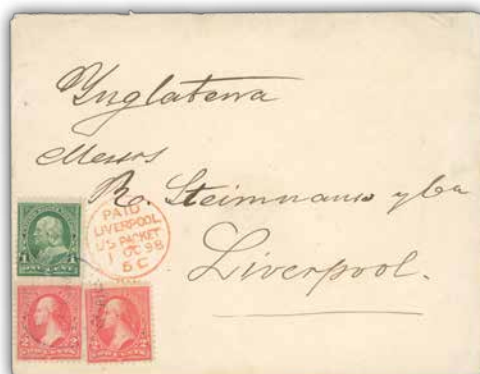 Inglaterra
Messrs
R. Steinmann y Ca
Liverpool.
PAID
LIVERPOOL
US PACKET
1 OC 98
5 C
1 1
ONE CENT
2 2
2 2